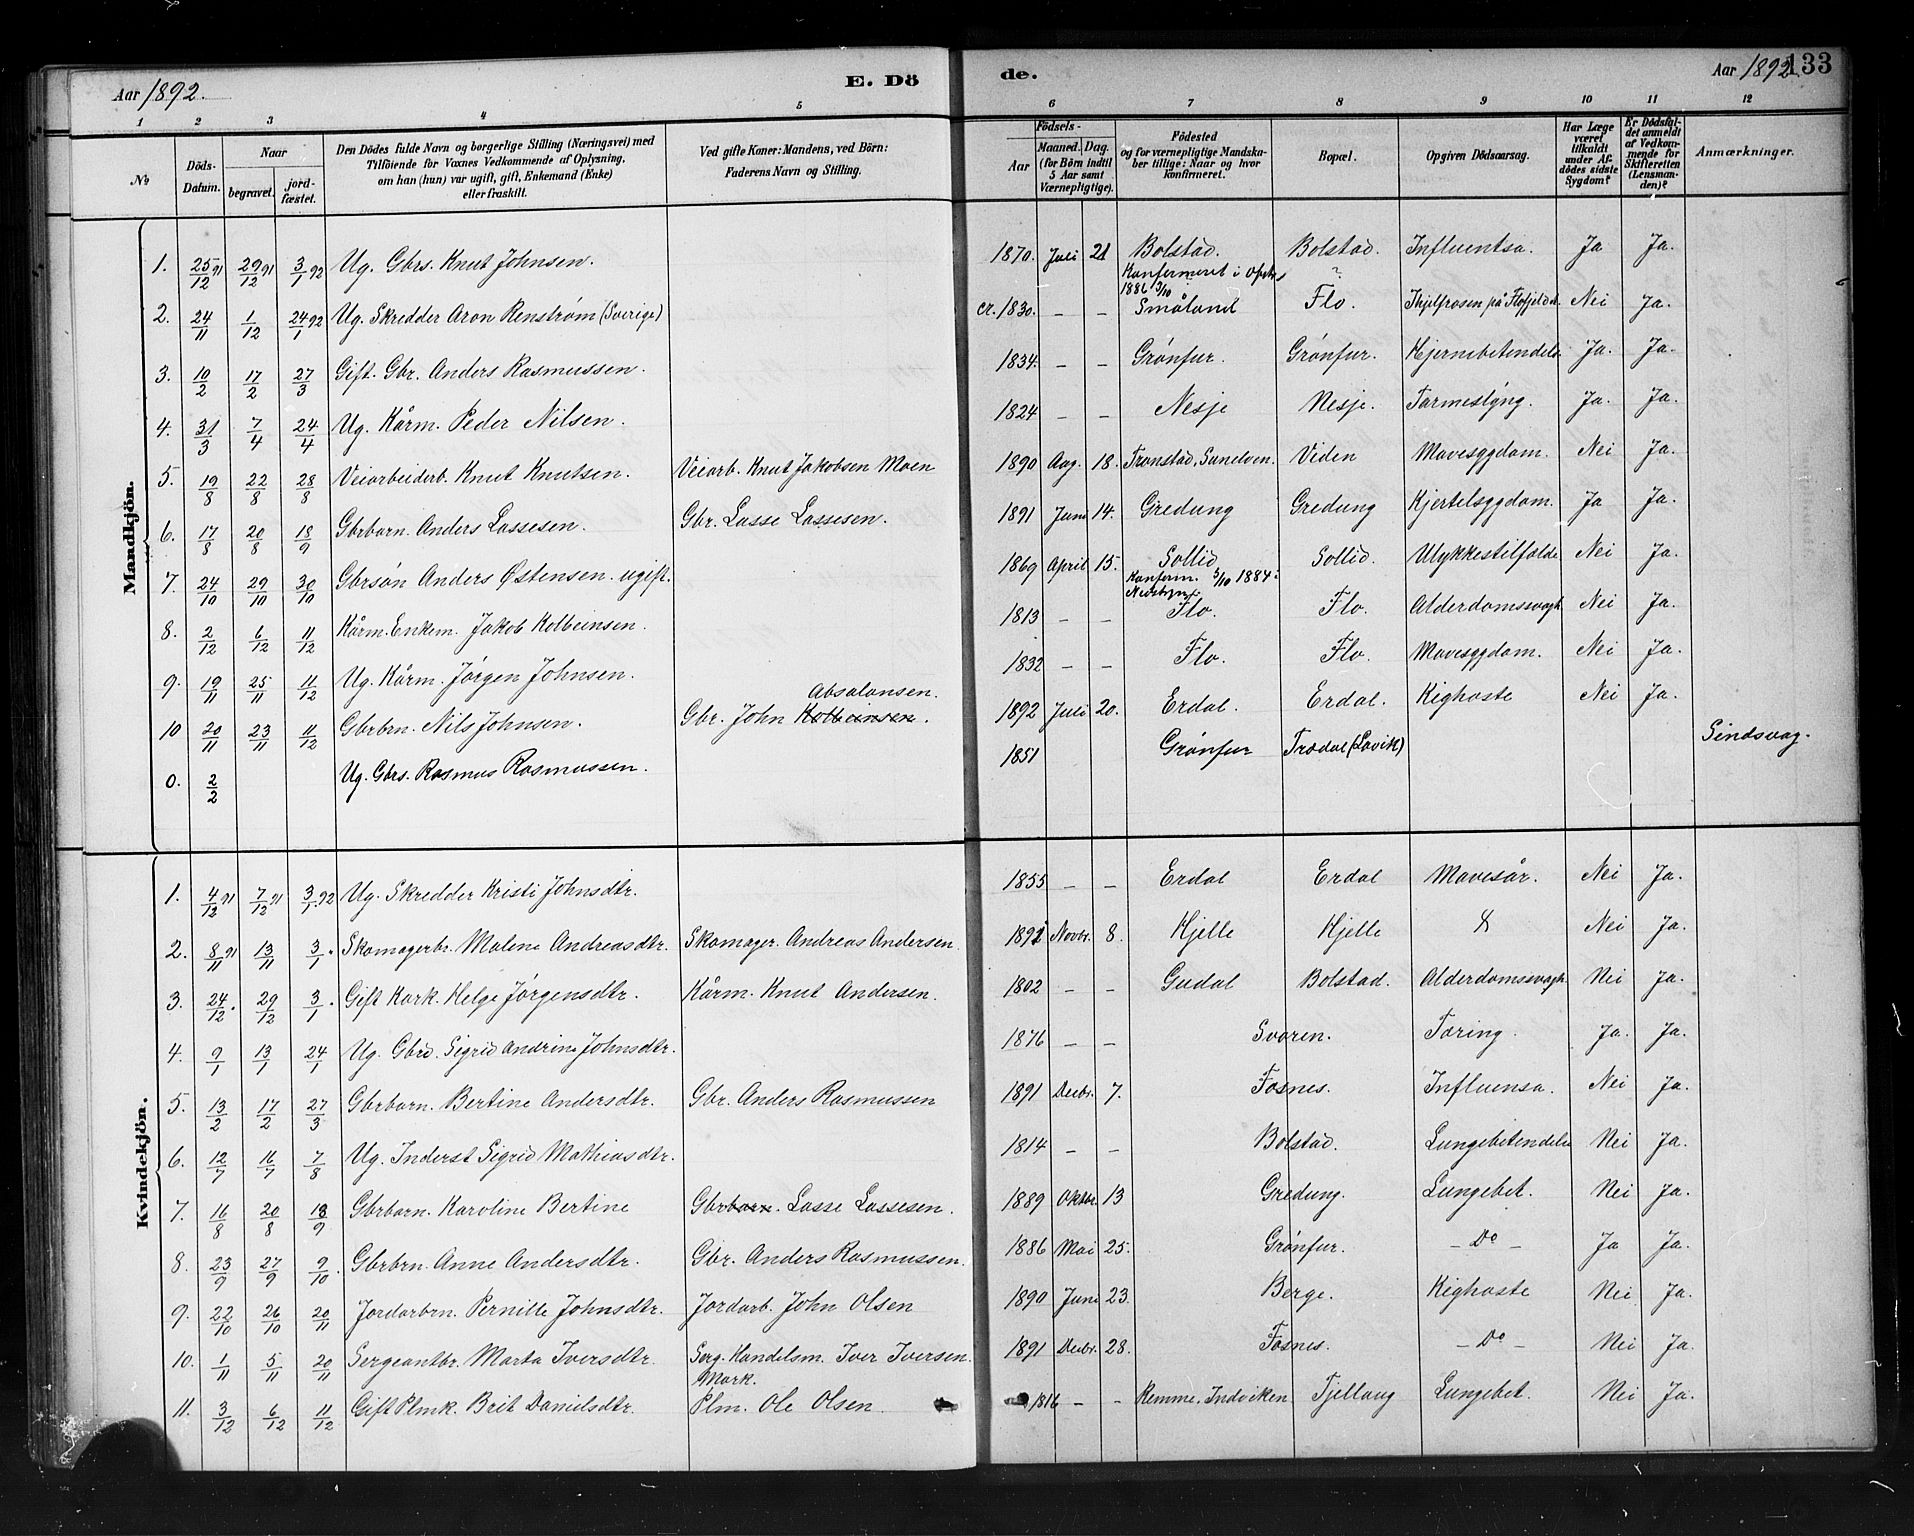 Aar 1892. E. Dö de. Aar 1892. 133
1 2 3 4 5 6 7 8 9 10 11 12
No Döds-Datum. Naar begravet. jordfæstet. Den Dödes fulde Navn og borgerlige Stilling (Næringsvei) med Tilföiende for Voxnes Vedkommende af Oplysning, om han (hun) var ugift, gift, Enkemand (Enke) eller fraskilt. Ved gifte Koner: Mandens, ved Börn: Faderens Navn og Stilling. Födsels- Aar Maaned. Dag. (for Börn indtil 5 Aar samt Værnepligtige). Födested og for værnepligtige Mandskaber tillige: Naar og hvor konfirmeret. Bopæl. Opgiven Dödsaarsag. Har Læge været tilkaldt under Afdödes sidste Sygdom? Er Dödsfaldet anmeldt af Vedkommende for Skifteretten (Lensmanden)? Anmærkninger.
Mandkjön.
1. 25/12 91 29/12 91 3/1 92 Ug. Gbrs. Knut Johnsen. 1870. Juli 21 Bolstad. Konfermeret i Opstr. 1886 3/10 Bolstad. Influentsa. Ja Ja.
2. 24/11 1/12 24/1 92 Ug. Skredder Aron Renstrøm (Sverige) cr. 1830. – – Småland ? Flo. Ihjelfrosen på Flofjeldet. Nei Ja.
3. 10/2 17/2 27/3 Gift. Gbr. Anders Rasmussen. 1834. – – Grønfur. Grønfur. Hjernebetendels. Ja. Ja.
4. 31/3 7/4 24/4 Ug. Kårm. Peder Nilsen. 1824 – – Nesje Nesje. Tarmeslyng. Ja. Ja.
5. 19/8 22/8 28/8 Veiarbeiderb. Knut Knutsen. Veiarb. Knut Jakobsen Moen 1890 Aug. 18. Tronstad, Sunelven. Viden Mavesygdom. Nei Ja.
6. 17/8 20/8 18/9 Gbrbarn. Anders Lassesen. Gbr. Lasse Lassesen. 1891 Juni 14. Gredung Gredung Kjertelsygdom. Ja Ja.
7. 24/10 29/10 30/10 Gbrsøn Anders Østensen. ugift. 1869 April 15. Sollid Konferm. 5/10 1884 i Nedstryn. Sollid. Ulykkestilfælde Nei Ja.
8. 2/12 6/12 11/12 Kårm. Enkem. Jakob Kolbeinsen. 1813 – – Flo. Flo. Alderdomssvagh. Nei Ja.
9. 19/11 25/11 11/12 Ug. Kårm. Jørgen Johnsen. 1832 – – Flo. Flo. Mavesygdom. Nei Ja.
10 20/11 23/11 11/12 Gbrbrn. Nils Johnsen. Gbr. John Kolbeinsen. Absalonsen. 1892 Juli 20. Erdal. Erdal. Kighoste Nei Ja.
0. 2/2 Ug. Gbrs. Rasmus Rasmussen. 1851 Grønfur Trædal (Lavik) Sindsvag.
Kvindekjön.
1. 4/12 91 7/12 91 3/1 92 Ug. Skredder Kristi Johnsdtr. 1855 – – Erdal Erdal Mavesår. Nei Ja.
2. 8/11 91 13/11 3/1 " Skomagerbr. Malene Andreasdtr. Skomager. Andreas Andersen. 1891 Novbr. 8. Hjelle Hjelle Nei Ja.
3. 24/12 " 29/12 3/1 " Gift Kark. Helge Jørgensdtr. Kårm. Knut Andersen. 1802 – – Gudal Bolstad. Alderdomssvagh. Nei Ja.
4. 9/1 13/1 24/1 Ug. Gbrd. Sigrid Andrine Johnsdtr. 1876 – – Svoren. Tæring. Ja. Ja.
5. 13/2 17/2 27/3 Gbrbarn. Bertine Andersdtr. Gbr. Anders Rasmussen 1891 Decbr. 7. Fosnes. Influensa. Nei Ja.
6. 12/7 16/7 7/8 Ug. Inderst Sigrid Mathiasdtr. 1814 – – Bolstad. Lungebetendelse Nei Ja.
7. 16/8 20/8 18/9 Gbrbarn. Karoline Bertine Gbrbarn. Lasse Lassesen. 1889 Oktbr. 13 Gredung. Lungebet. Nei Ja.
8. 23/9 27/9 9/10. Gbrbrn. Anne Andersdtr. Gbr. Anders Rasmussen. 1886 Mai 25. Grønfur. – Do – Ja Ja.
9. 22/10 26/10 20/11 Jordarbrn. Pernille Johnsdtr. Jordarb. John Olsen 1890 Juni 23. Berge. Kighoste Nei. Ja.
10. 1/11 5/11 20/11 Sergeantbr. Marta Iversdtr. Serg. Handelsm. Iver Iversen. Mork. 1891 Decbr. 28. Fosnes. – Do – Nei Ja.
11. 3/12 6/12 11/12 Gift Plmk. Brit Danielsdtr. Plm. Ole Olsen 1816 – – Remme, Indviken Tjellaug Lungebet. Nei Ja.